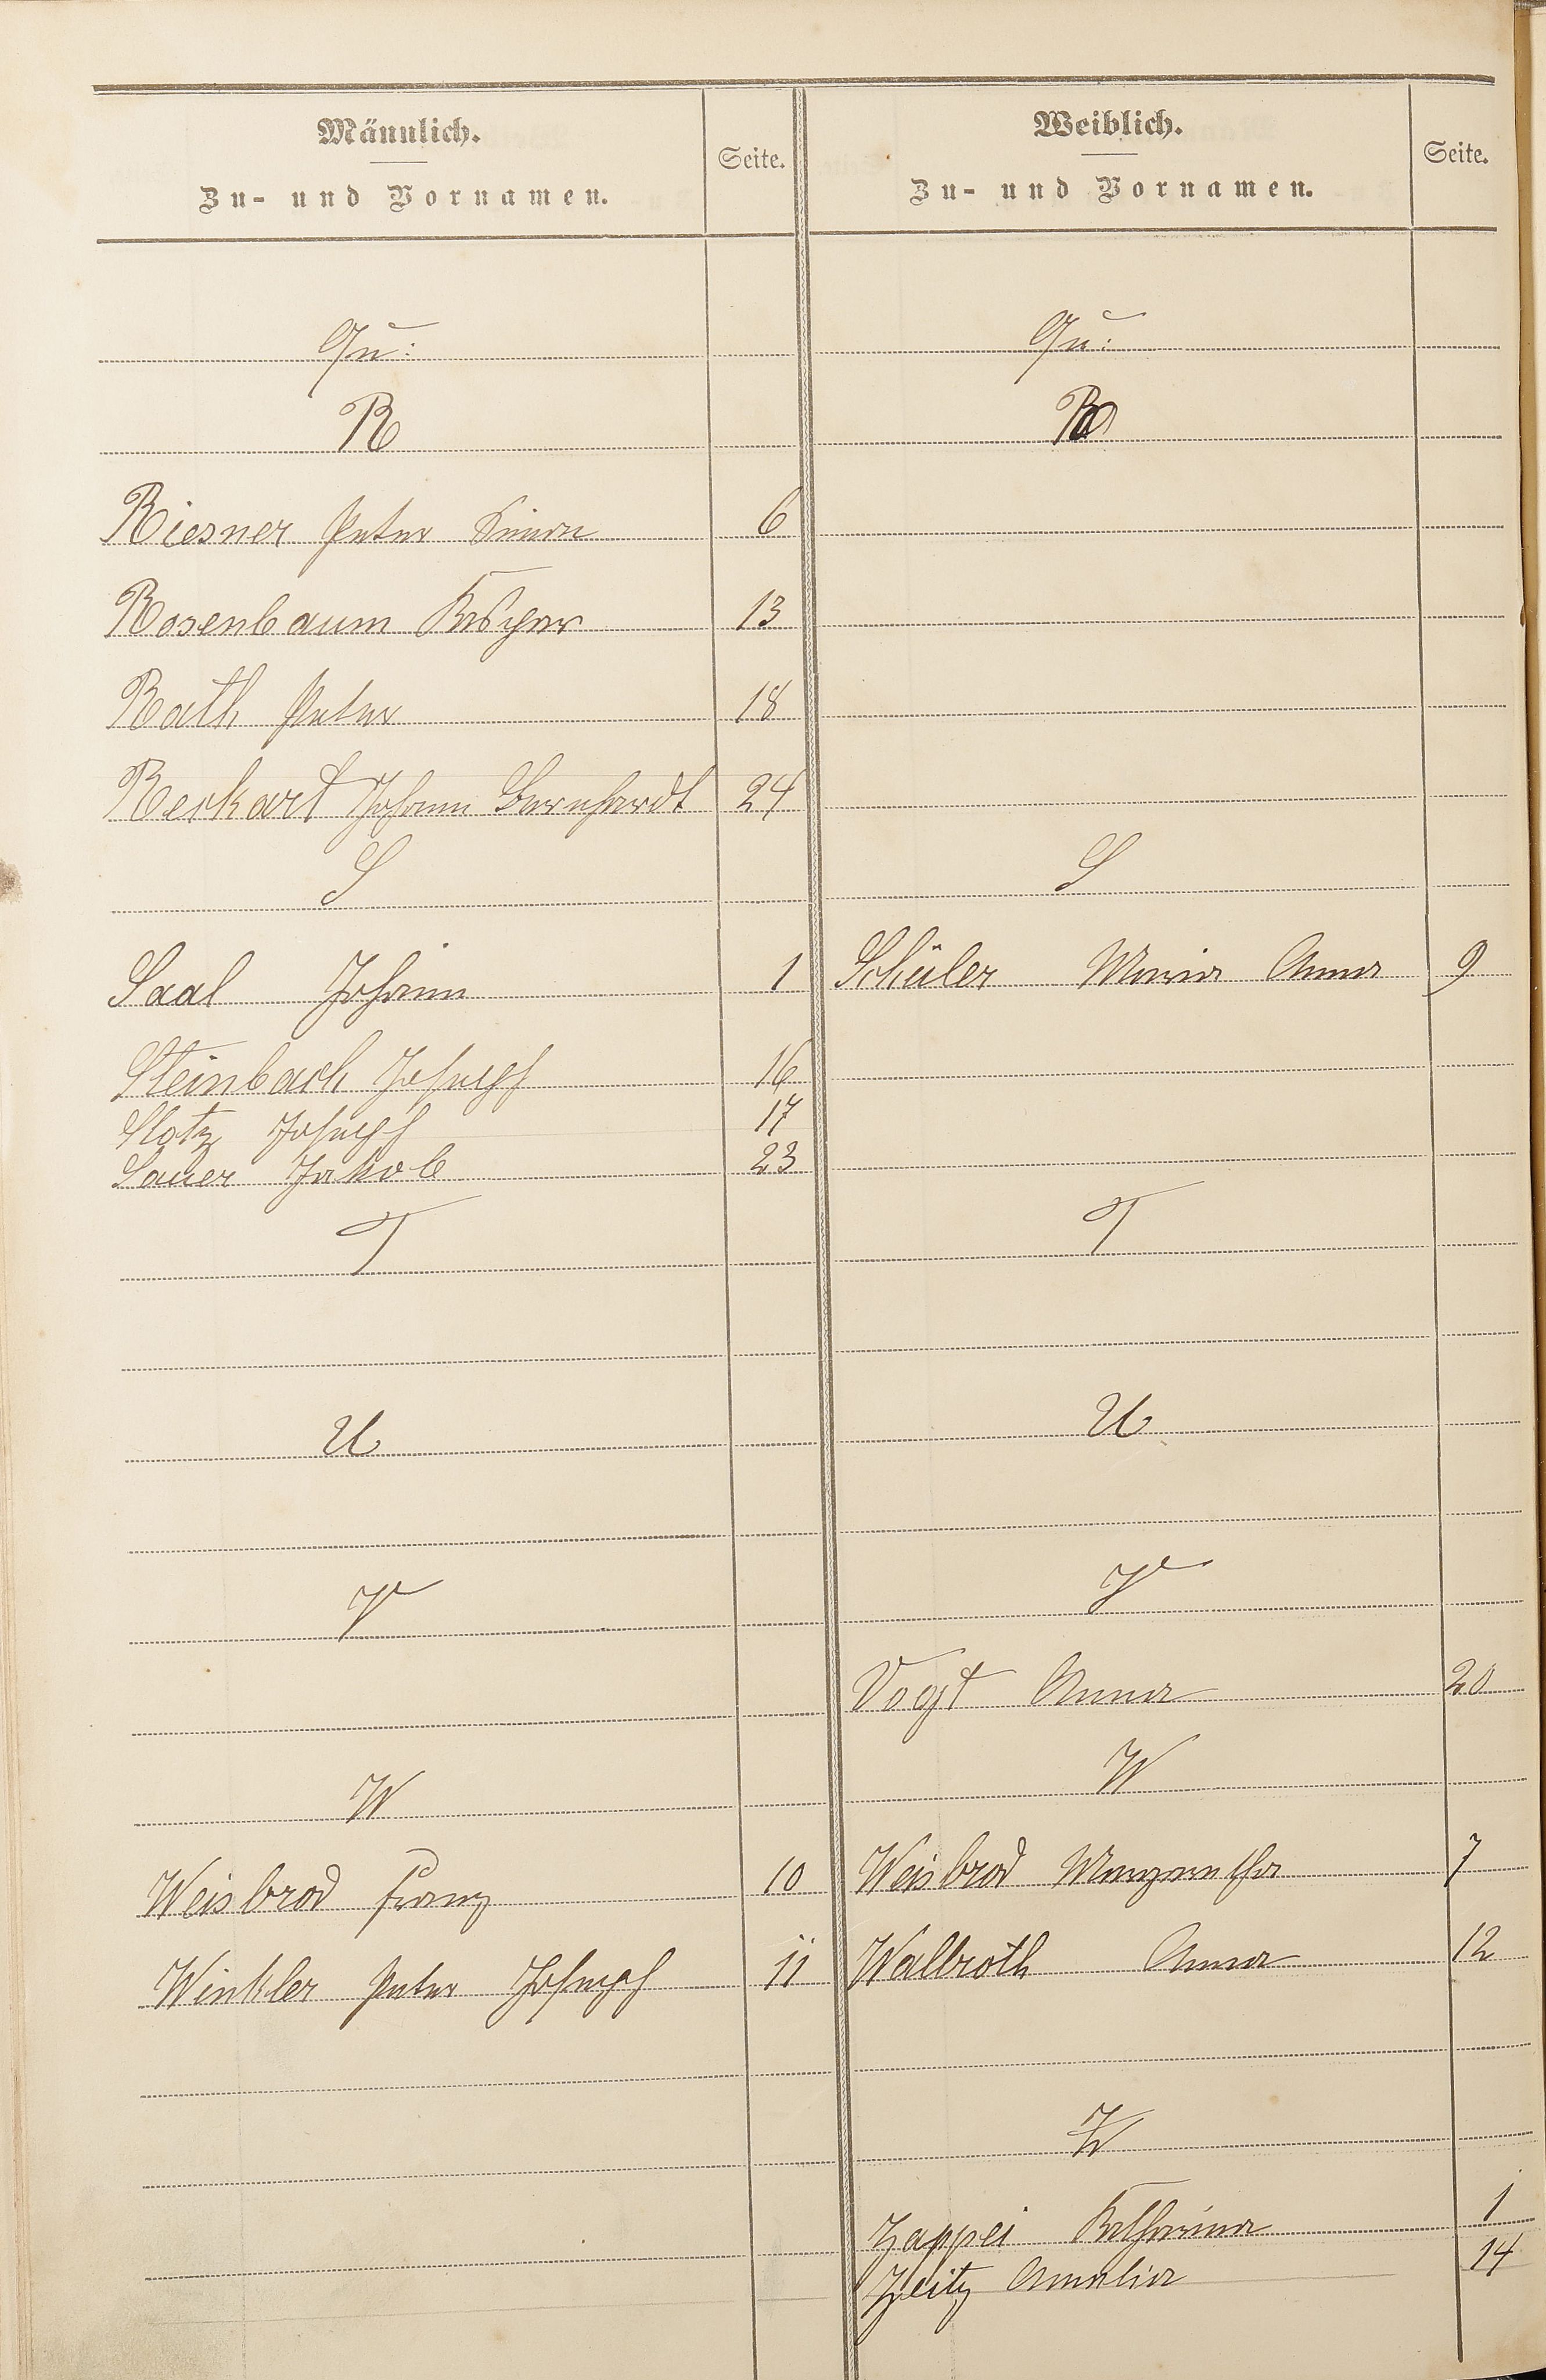 Männlich.
Zu- und Vornamen.
Seite.
Qu:
R
Riesner Peter Simon 6
Rosenbaum Kaspar 13
Rath Peter 18
Reckart Johann Bernhardt 24
S
Saal Johann 1
Steinbach Joseph 16
Slotz Joseph 17
Sauer Jakob 23
T
U
V
W
Weisbrod Franz 10
Winkler Peter Joseph 11
Weiblich.
Zu- und Vornamen.
Seite.
Qu:
R
S
Schüler Maria Anna 9
T
U
V
Vogt Anna 20
W
Weisbrod Margaretha 7
Walbroth Anna 12
Z
Zappei Katharina 1
Zeitz Amalia 14